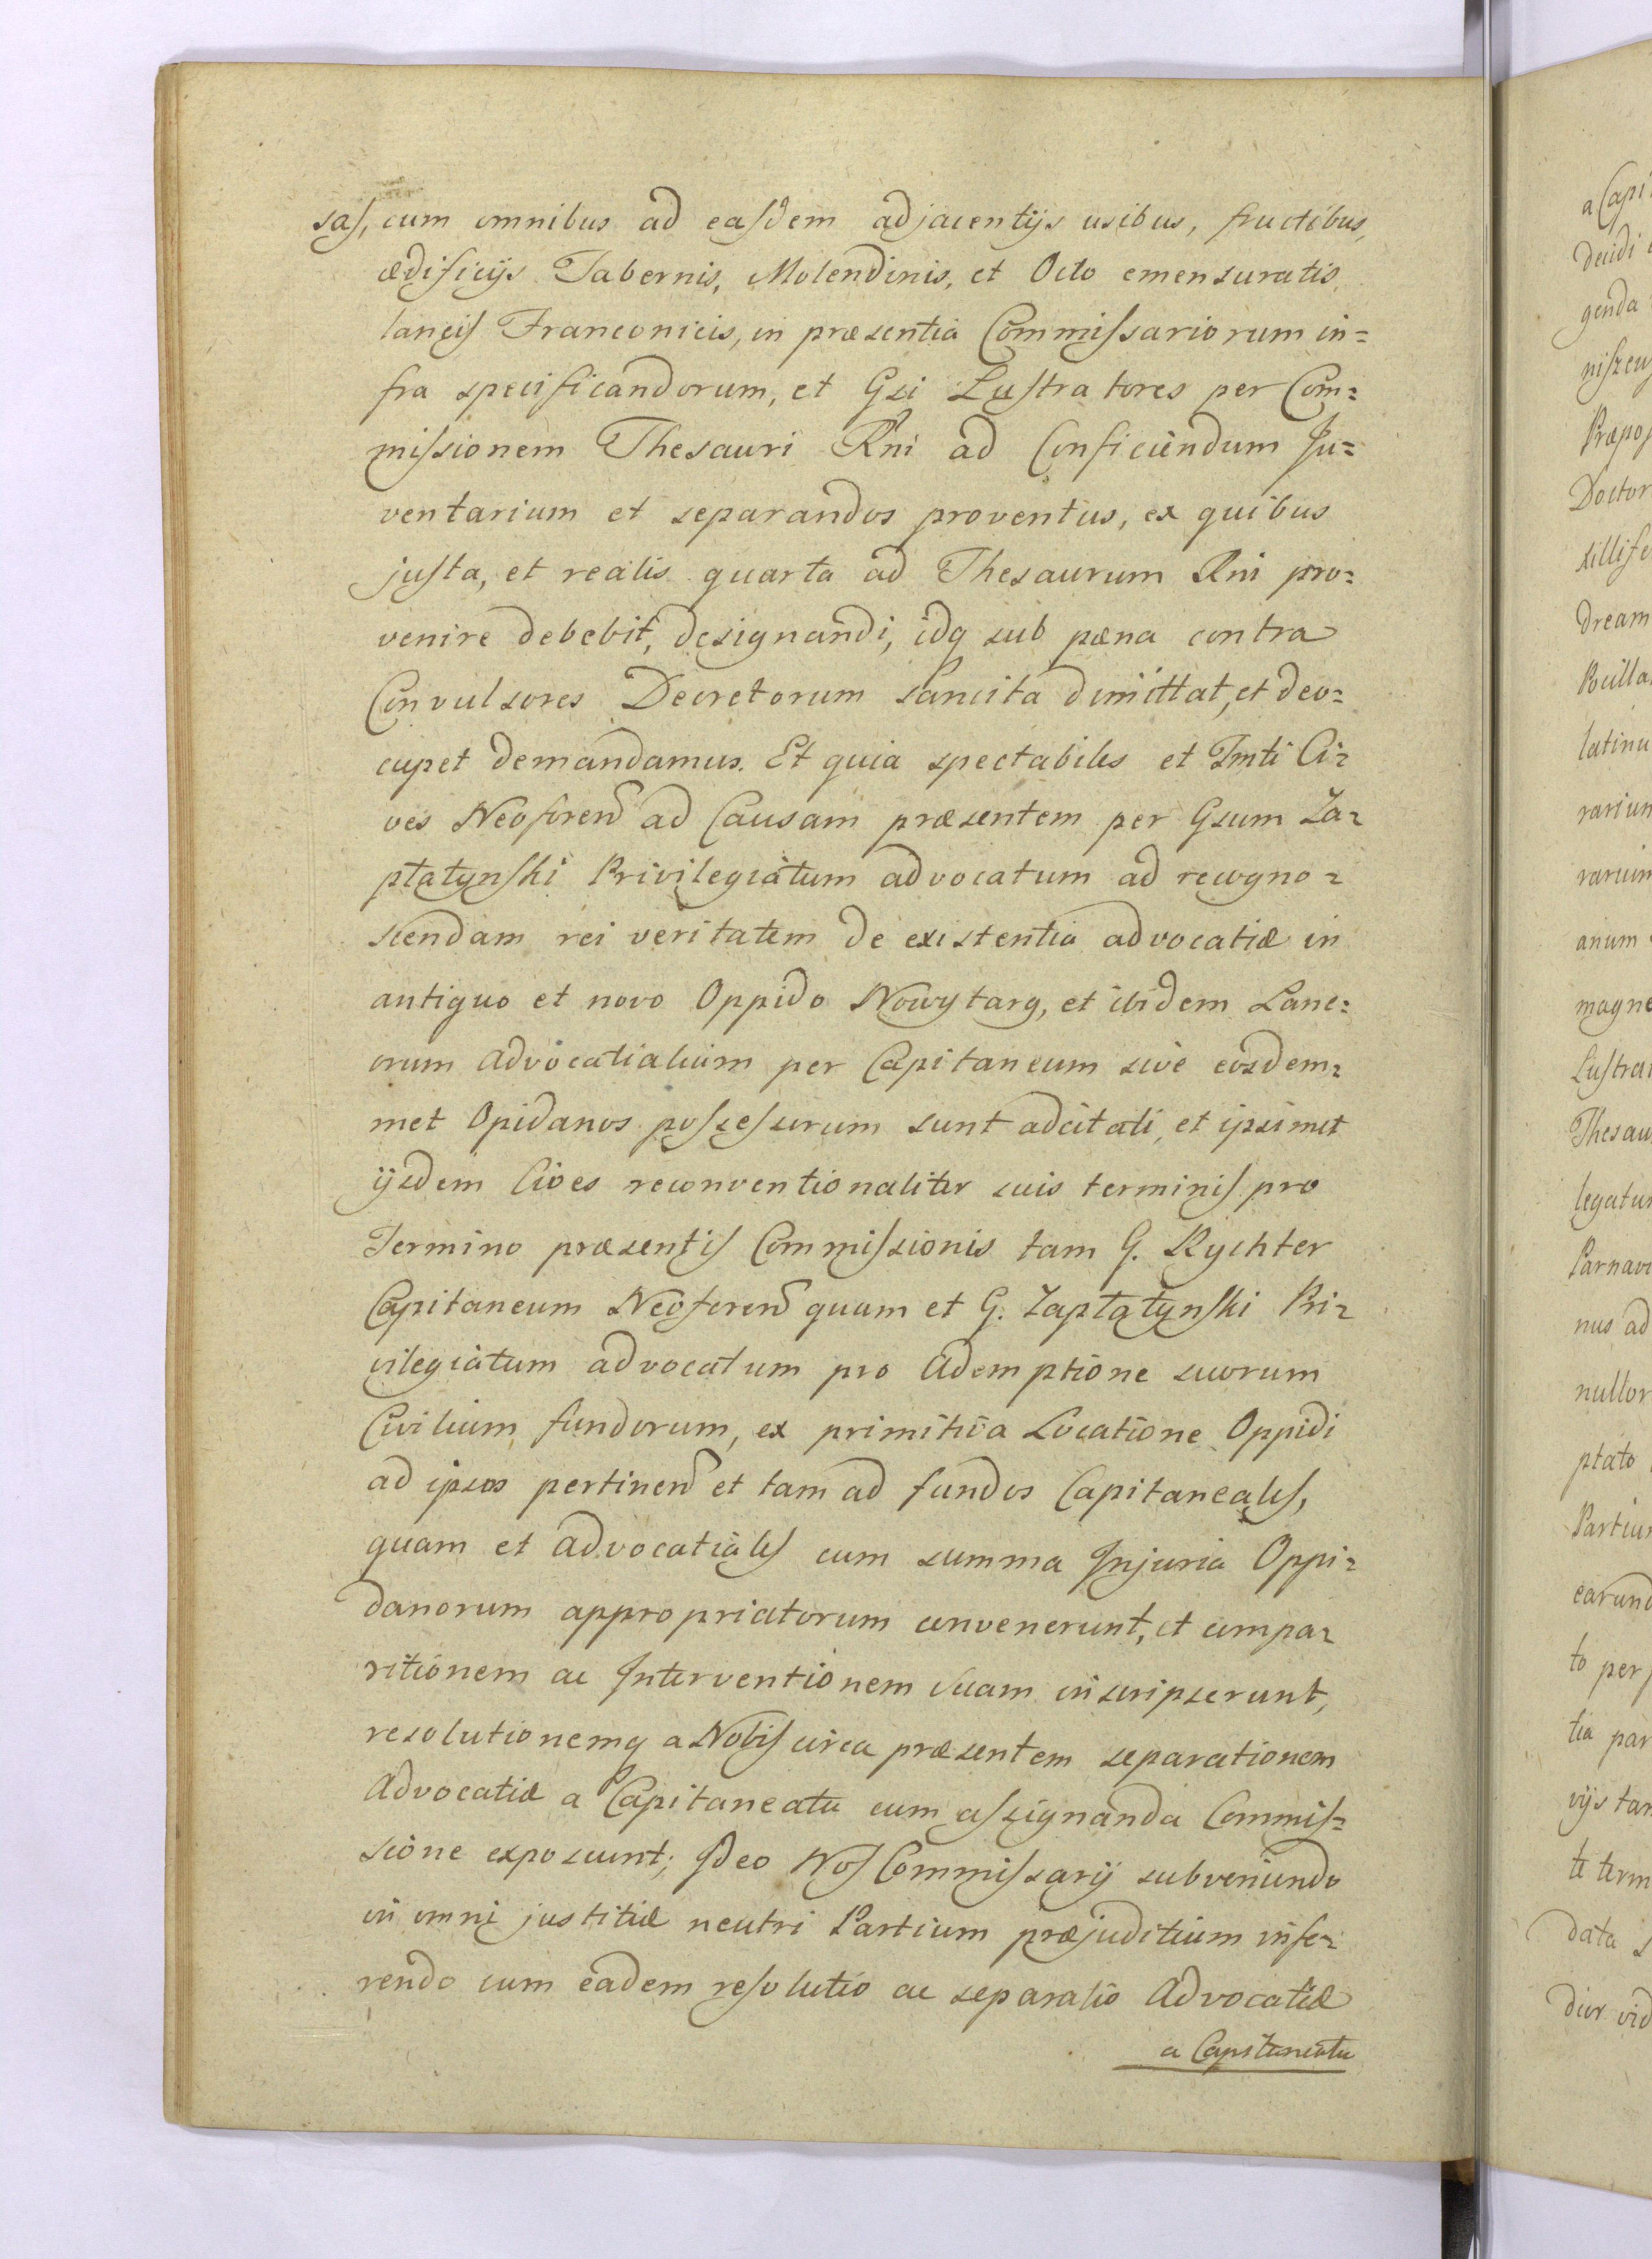 sas, cum omnibus ad easdem adjacentijs usibus, fructibus,
ædificijs Tabernis, Molendinis, et Octo emensuratis
laneis Franconicis, in præsentia Commissariorum in=
fra specificandorum, et Gsi Lustratores per Com=
missionem Thesauri Rni ad Conficiendum In=
ventarium et separandos proventus, ex quibus
justa, et realis quarta ad Thesaurum Rni pro=
venire debebit, designandi, idq sub pæna contra
Convulsores Decretorum sancita dimittat, et deo=
cupet demandamus. Et quia spectabiles et Fmti Ci=
ves Neoforen ad Causam præsentem per Gsum Za=
ptatynski Privilegiatum advocatum ad recogno=
scendam rei veritatem de existentia advocatiæ in
antiquo et novo Oppido Nowytarg, et ibidem Lane=
orum advocatialium per Capitaneum sive eosdem=
met Opidanos possessorum sunt adcitati, et ipsimet
ijsdem Cives reconventionaliter suis terminis pro
Termino præsentis Commissionis tam G. Rychter
Capitaneum Neoforen quam et G. Zaptatynski Pri=
vilegiatum advocatum pro Ademptione suorum
Civilium fundorum, ex primitiva Locatione Oppidi
ad ipsos pertinen et tam ad fundos Capitaneales,
quam et advocatiales cum summa Injuria Oppi=
danorum appropriatorum convenerunt, et compa=
ritionem ac Interventionem suam inscripserunt,
resolutionemq a Nobis circa præsentem separationem
Advocatiæ a Capitaneatu cum assignanda Commis=
sione exposcunt; Ideo Nos Commissarij subveniendo
in omni justitiæ neutri Partium præjuditium infe=
rendo cum eadem resolutio ac separatio Advocatiæ
a Capitaneatu
a Capi
decidi
genda
niszew
Præpos
Doctor
xillife
dream
Bulla
latinu
rarium
rarium
anum
magne
Lustra
Thesau
legatu
Parnav
nus ad
nullor
ptato
Partiu
earund
to per
tia par
vijs tam
te term
data